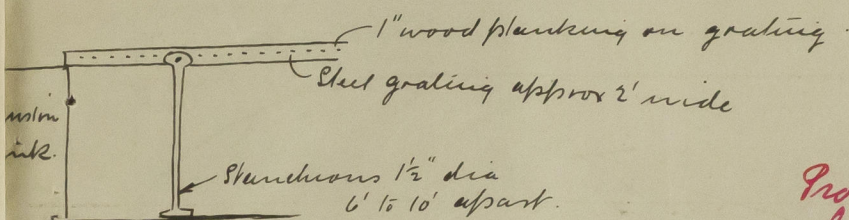 1" wood planking on grating
Steel grating approx 2' wide
Stanchions 1½" dia
6' to 10' apart.